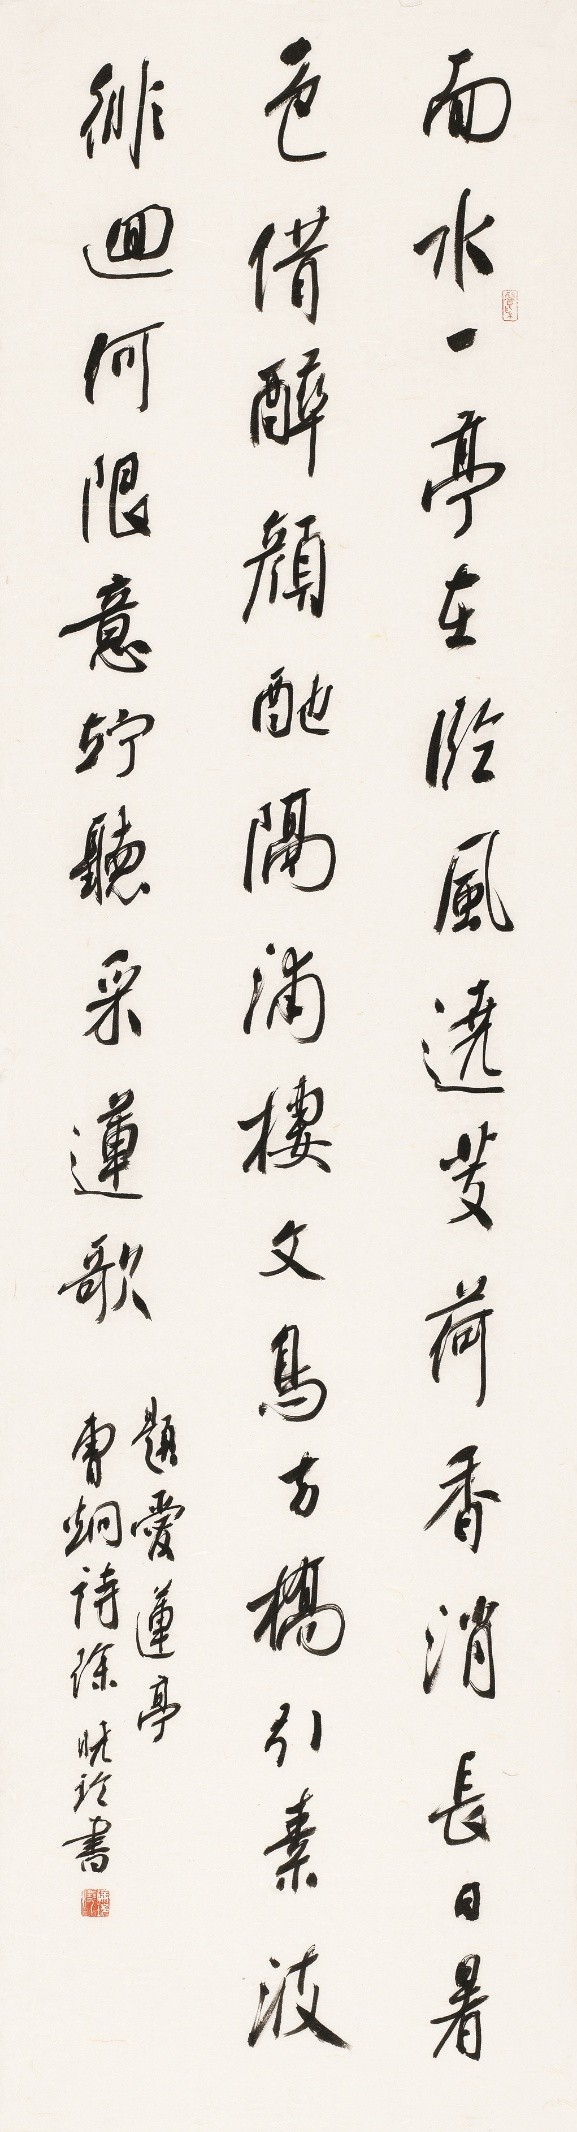 面水一亭在臨風遶芰荷香消長日暑
色借醉顏酡隔浦棲文鳥方橋引素波
徘迴何限意竚聽采蓮歌
題愛蓮亭
曹炯詩徐晓玲書